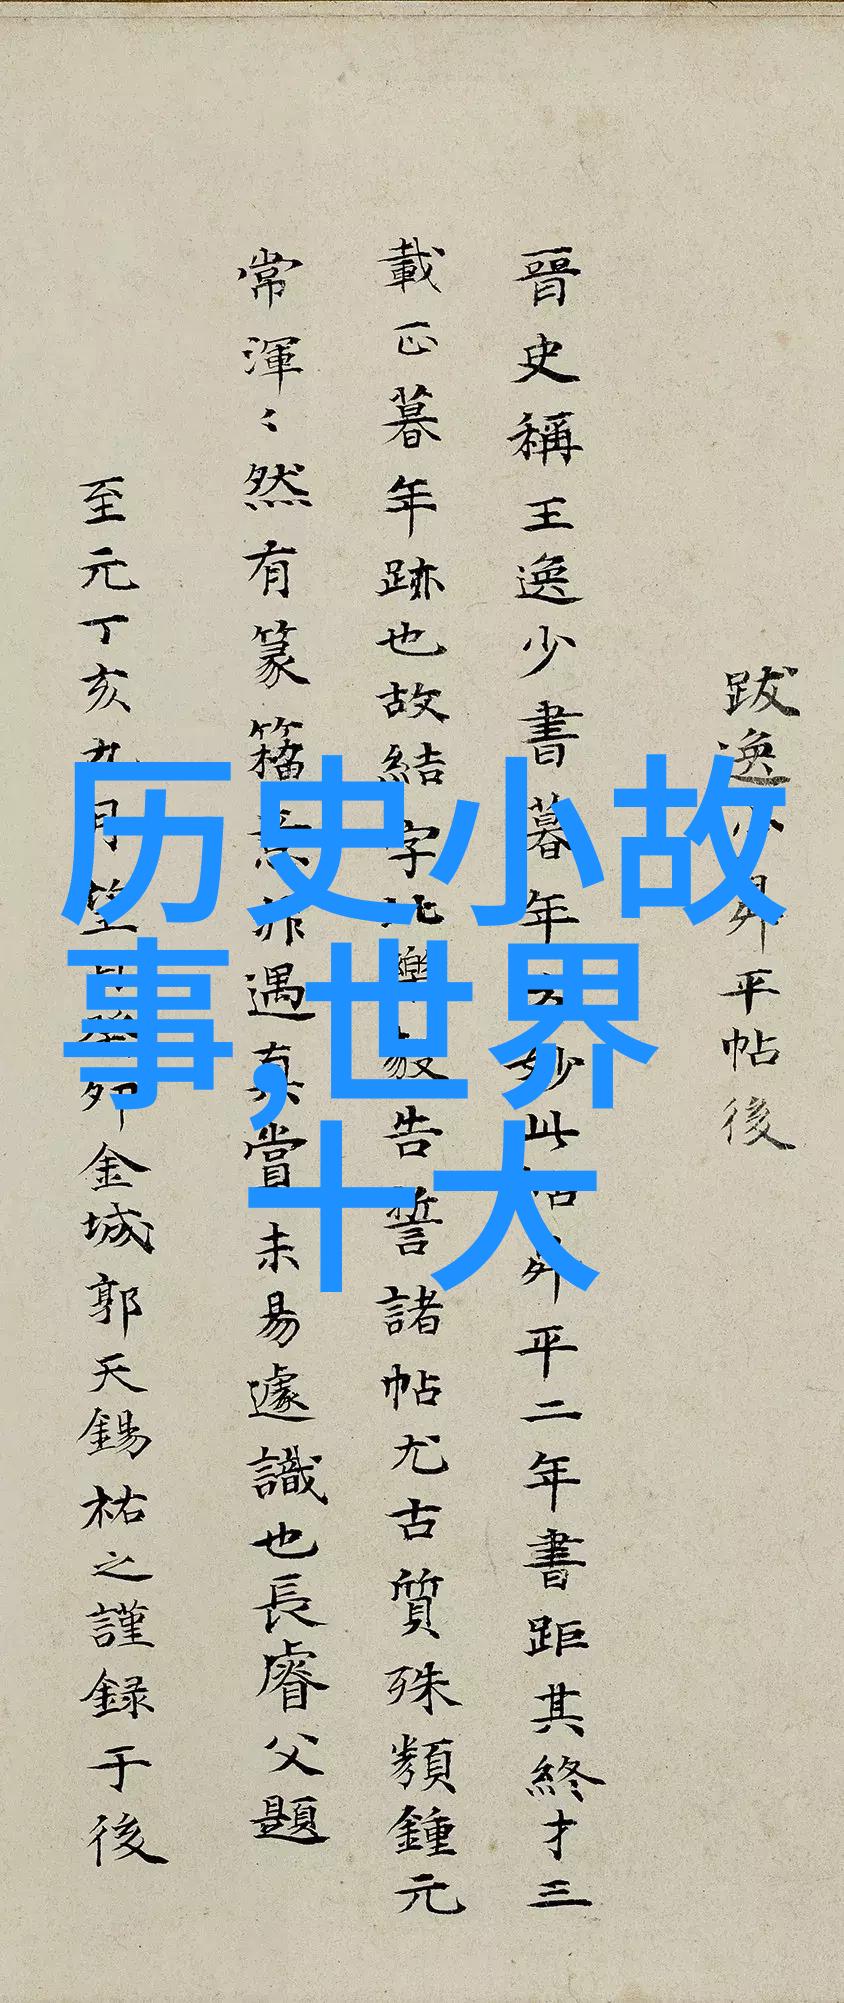 跋逸少昇平帖後
晉史稱王逸少書暮年方妙此帖昇平二年書距其終才三
載正暮年跡也故結字比樂毅告誓諸帖尤古質殊類鍾元
常渾〻然有篆籀意非遇真賞未易遽識也長睿父題
至元丁亥九月望日癸卯金城郭天錫祐之謹録于後
历史小故
事,世界
十大